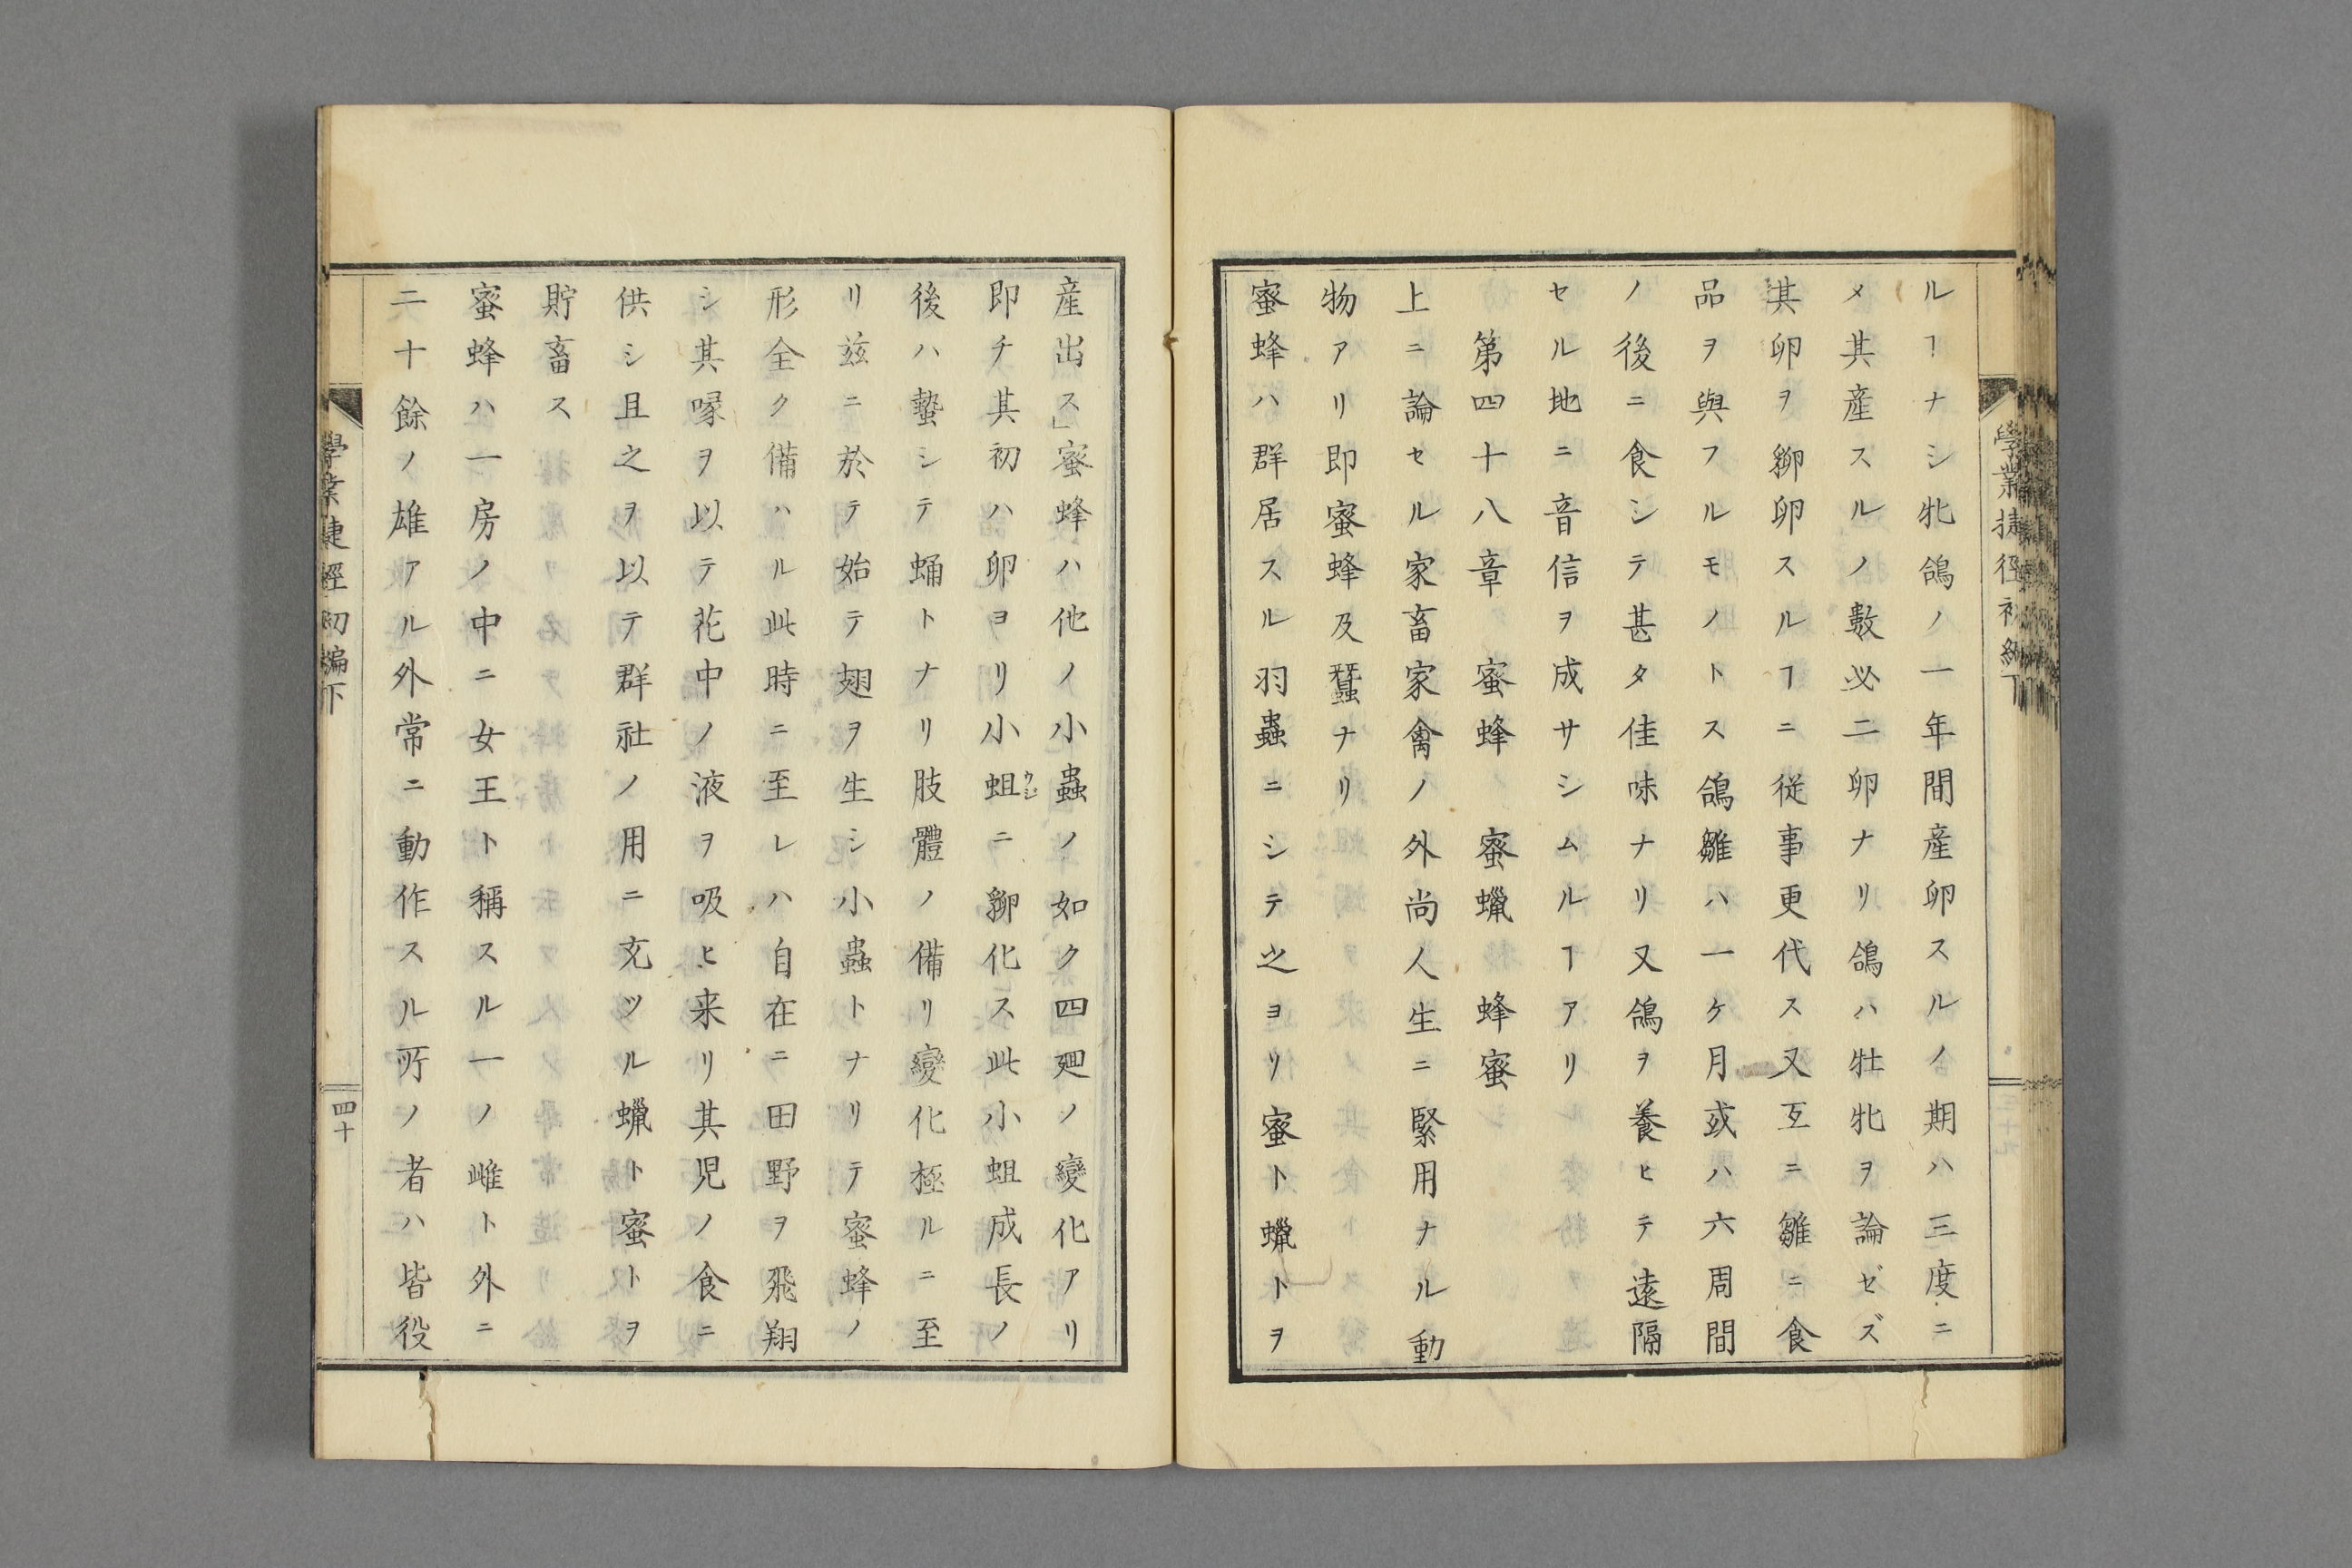 ルヿナシ牝鴿ノ一年間産卵スルノ期ハ三度ニ
メ其産スルノ數必二卵ナリ鴿ハ牡牝ヲ論ゼズ
其卵ヲ孵卵スルヿニ従事更代ス又互ニ雛ニ食
品ヲ與フルモノトス鴿雛ハ一ケ月或ハ六周間
ノ後ニ食シテ甚タ佳味ナリ又鴿ヲ養ヒテ遠隔
セル地ニ音信ヲ成サシムルヿアリ
第四十八章　蜜蜂　蜜蠟　蜂蜜
上ニ論セル家畜家禽ノ外尚人生ニ緊用ナル動
物アリ即蜜蜂及蠶ナリ
蜜蜂ハ群居スル羽蟲ニシテ之ヨリ蜜ト蠟トヲ
産出ス」蜜蜂ハ他ノ小蟲ノ如ク四廻ノ變化アリ
即チ其初ハ卵ヨリ小蛆ウジニ孵化ス此小蛆成長ノ
後ハ蟄シテ蛹トナリ肢體ノ備リ變化極ルニ至
リ玆ニ於テ始テ翅ヲ生シ小蟲トナリテ蜜蜂ノ
形全ク備ハル此時ニ至レハ自在ニ田野ヲ飛翔
シ其喙ヲ以テ花中ノ液ヲ吸ヒ来リ其児ノ食ニ
供シ且之ヲ以テ群社ノ用ニ充ツル蠟ト蜜トヲ
貯畜ス
蜜蜂ハ一房ノ中ニ女王ト稱スル一ノ雌ト外ニ
二十餘ノ雄アル外常ニ動作スル所ノ者ハ皆役
學業捷徑初編下
四十